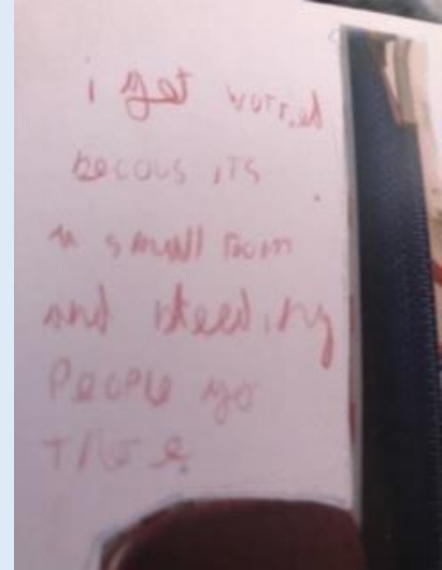 i get worried
becous its
a small room
and bleeding
people go